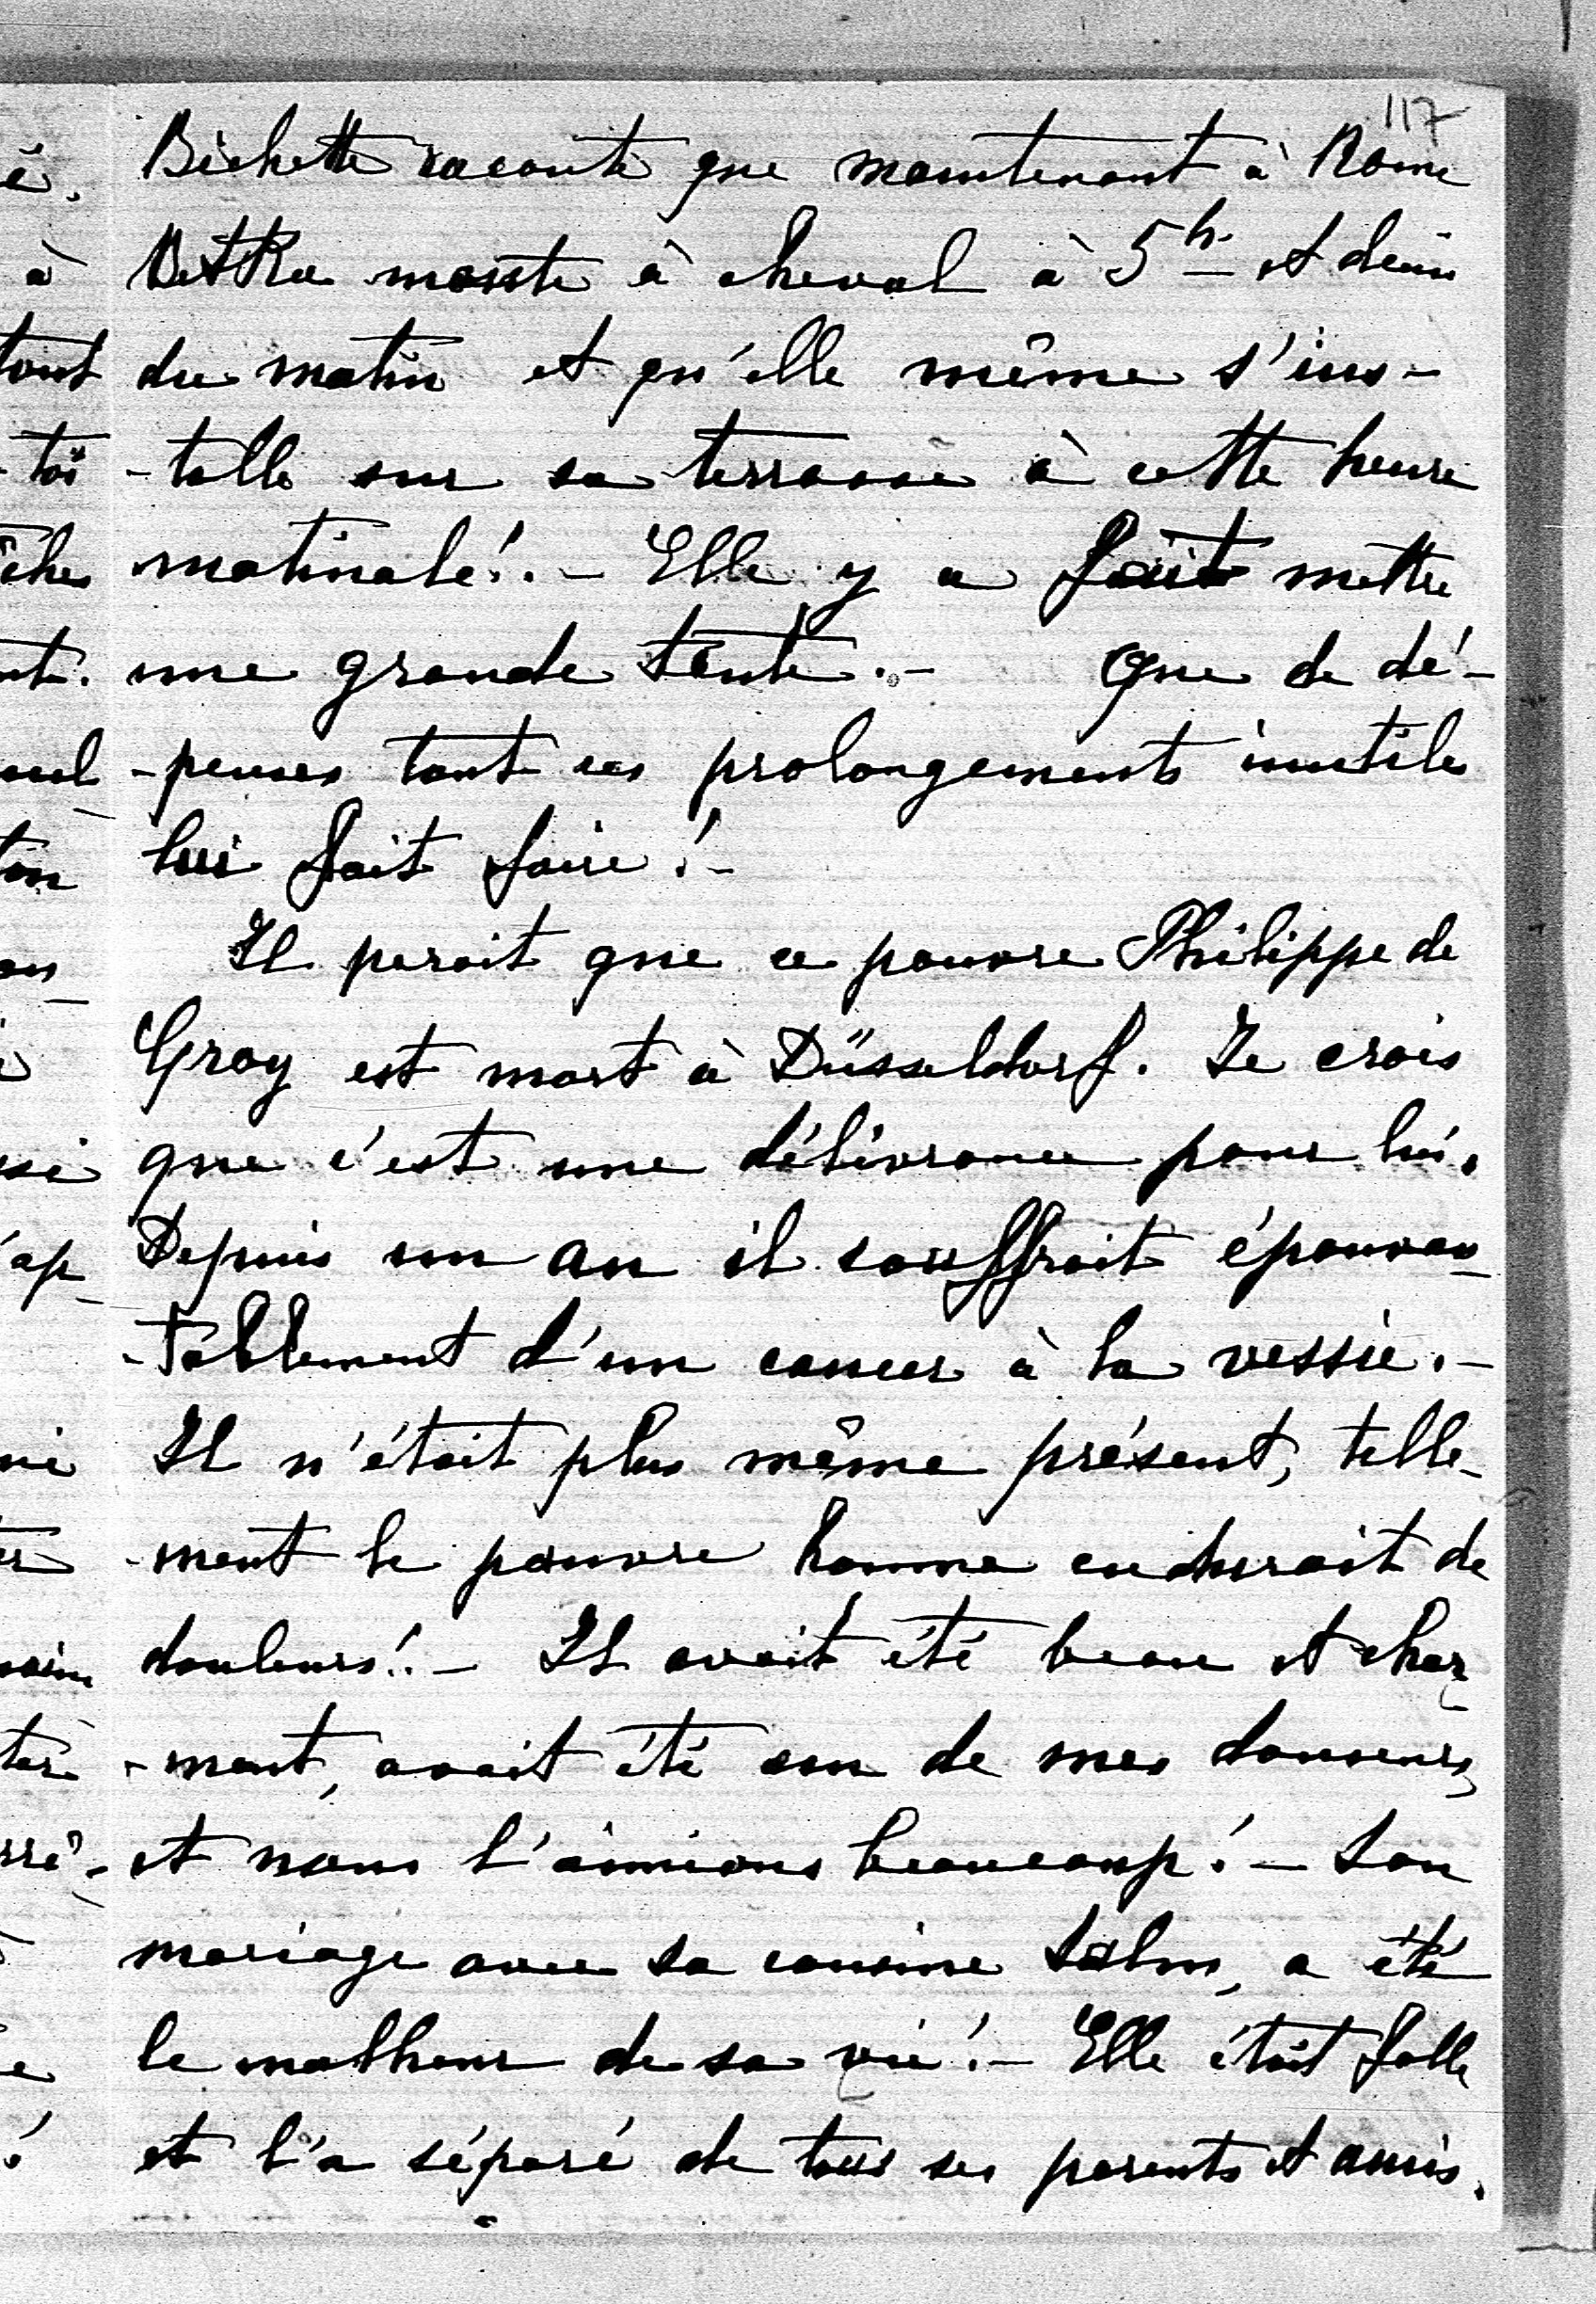 117
Bichette raconte que maintenant à Rome
Betka monte à cheval à 5 h. et demie
du matin et qu'elle même s'ins-
-talle sur sa terrasse à cette heure
matinale!. - Elle y a fait mettre
une grande tente. - Que de dé-
-penses tout ces prolongements inutiles
lui fait faire! -
Il parait que ce pauvre Philippe de
Croy est mort à Düsseldorf. Je crois
que c'est une délivrance pour lui.
Depuis un an il souffrait épouvan-
-tablement d'un cancer à la vessie. -
Il n'était plus même présent, telle-
-ment le pauvre homme endurait de
douleurs!. - Il avait été beau et char-
-mant, avait été un de mes danseurs,
et nous l'aimions beaucoup! - Son
mariage avec sa cousine Salm, a été
le malheur de sa vie! - Elle était folle
et l'a séparé de tous ses parents et amis.